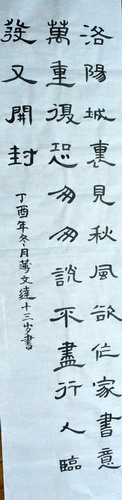 洛陽城裏見秋風欲作家書意
萬重復恐匆匆說不盡行人臨
發又開封
丁酉年冬月萬文達十三歲書